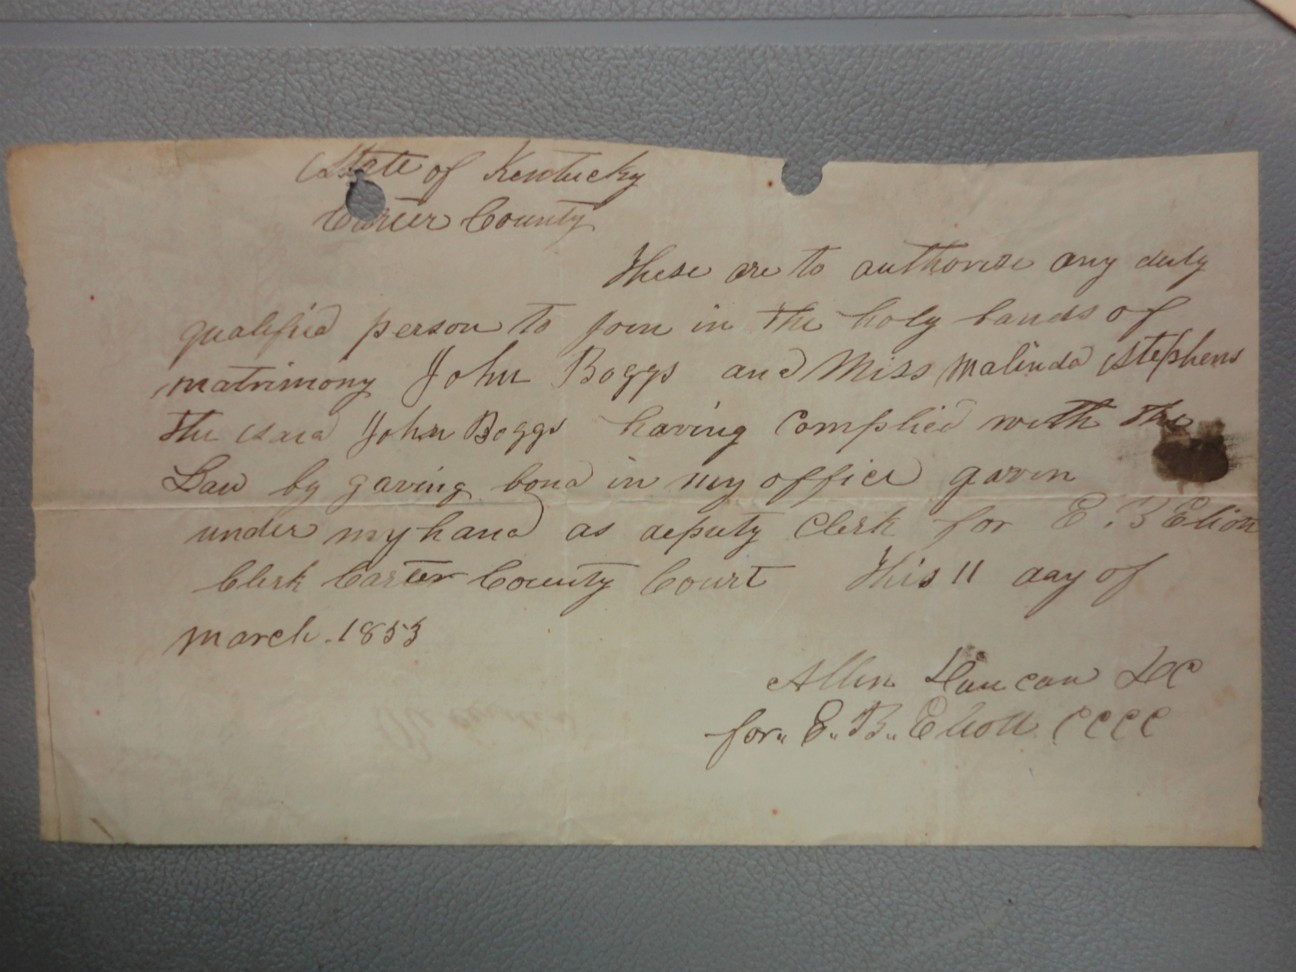 State of Kentucky
Carter County
These are to authorise any duly
qualified person to join in the holy bands of
matrimony John Boggs and Miss Malinda Stephens
the said John Boggs having complied with the
Law by gaving bond in my office gavin
under my hand as deputy Clerk for E. B Eliott
Clerk Carter County Court This 11 day of
March. 1853
Allen Duncan DC
for,, E,, B,, Eliott CCCC